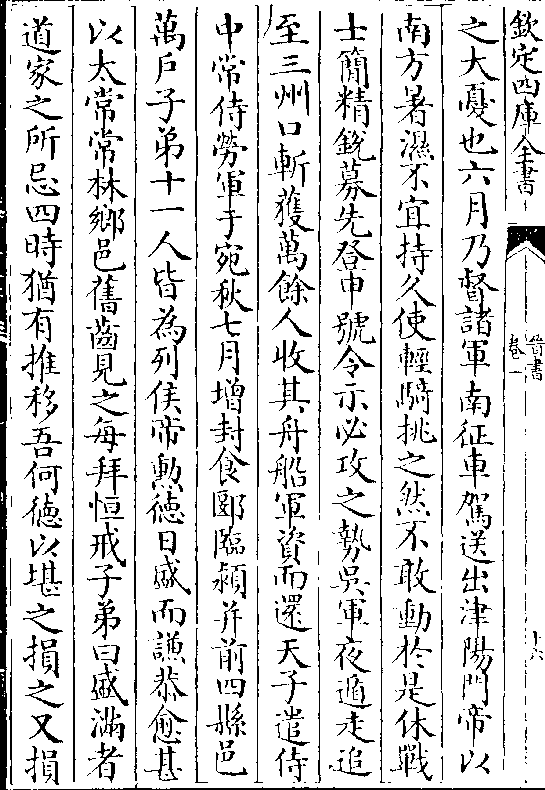 欽定四庫全書
晉書
卷一
十六
之大憂也六月乃督諸軍南征車駕送出津陽門帝以
南方暑濕不宜持久使輕騎挑之然不敢動於是休戰
士簡精銳募先登申號令示必攻之勢吳軍夜遁走追
至三州口斬獲萬餘人收其舟船軍資而還天子遣侍
中常侍勞軍于宛秋七月增封食郾臨潁并前四縣邑
萬戶子弟十一人皆為列侯帝勲徳日盛而謙恭愈甚
以太常常林鄉邑舊齒見之每拜恒戒子弟曰盛滿者
道家之所忌四時猶有推移吾何徳以堪之損之又損